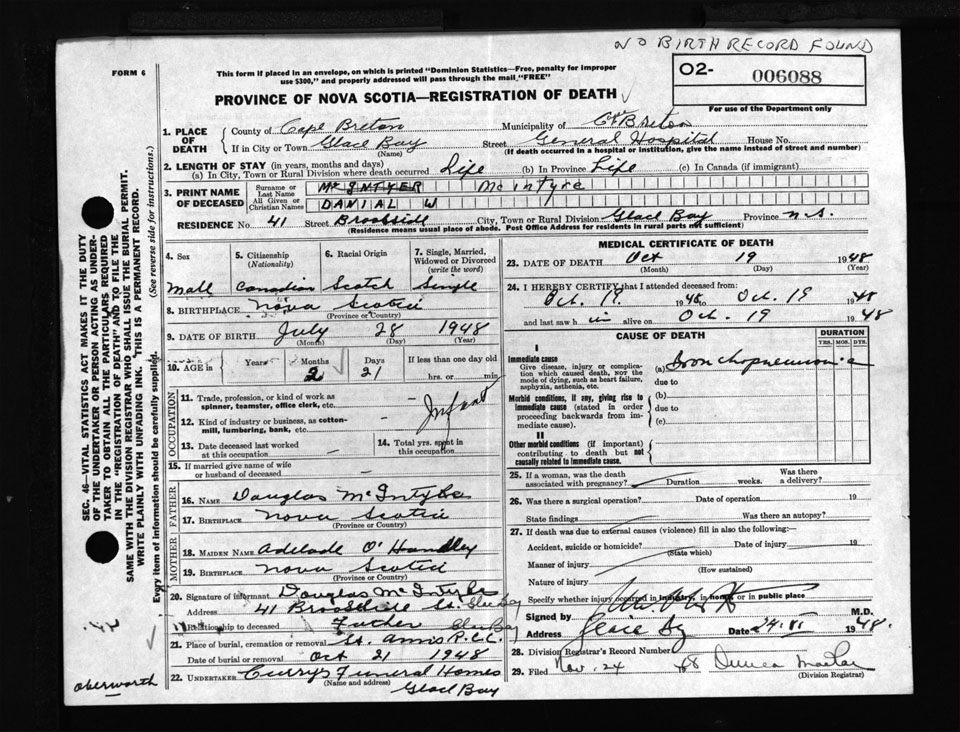 NO BIRTH RECORD FOUND
FORM 6
This form if placed in an envelope, on which is printed "Dominion Statistics—Free, penalty for improper
use $300," and properly addressed will pass through the mail "FREE"
O2- 006088
For use of the Department only
PROVINCE OF NOVA SCOTIA—REGISTRATION OF DEATH
1. PLACE OF DEATH
County of Cape Breton Municipality of C. Breton
If in City or Town Glace Bay Street General Hospital House No.
(Name) (If death occurred in a hospital or institution, give the name instead of street and number)
2. LENGTH OF STAY (in years, months and days)
(a) In City, Town or Rural Division where death occurred Life (b) In Province Life (c) In Canada (if immigrant)
3. PRINT NAME OF DECEASED
Surname or Last Name McINTYER McIntyre
All Given or Christian Names DANIAL W
RESIDENCE No 41 Street Brookside City, Town or Rural Division Glace Bay Province N.S.
(Residence means usual place of abode. Post Office Address for residents in rural parts not sufficient)
4. Sex
Male
5. Citizenship
(Nationality)
Canadian
6. Racial Origin
Scotch
7. Single, Married, Widowed or Divorced
(write the word)
Single
8. BIRTHPLACE Nova Scotia
(Province or Country)
9. DATE OF BIRTH July 28 1948
(Month) (Day) (Year)
10. AGE in Years Months Days If less than one day old
2 21 hrs. or min.
OCCUPATION
11. Trade, profession, or kind of work as
spinner, teamster, office clerk, etc.
Infant
12. Kind of industry or business, as cotton-
mill, lumbering, bank, etc.
13. Date deceased last worked
at this occupation
14. Total yrs. spent in
this occupation
15. If married give name of wife
or husband of deceased
FATHER
16. NAME Douglas McIntyre
17. BIRTHPLACE Nova Scotia
(Province or Country)
MOTHER
18. MAIDEN NAME Adelade O'Handley
19. BIRTHPLACE Nova Scotia
(Province or Country)
20. Signature of informant Douglas McIntyre
Address 41 Brookside St. Glace Bay
Relationship to deceased Father Glace Bay
21. Place of burial, cremation or removal St. Anns R.C.C.
Date of burial or removal Oct 21 1948
22. UNDERTAKER Currys Funeral Homes
(Name and address)
Glace Bay
MEDICAL CERTIFICATE OF DEATH
23. DATE OF DEATH Oct 19 1948
(Month) (Day) (Year)
24. I HEREBY CERTIFY that I attended deceased from:
Oct. 19 1948 to Oct. 19 1948
and last saw him alive on Oct. 19 1948
CAUSE OF DEATH
DURATION
YRS. MOS. DYS.
I
Immediate cause
Give disease, injury or complica-
tion which caused death, not the
mode of dying, such as heart failure,
asphyxia, asthenia, etc.
(a) Bronchopneumonia
due to
Morbid conditions, if any, giving rise to
immediate cause (stated in order
proceeding backwards from im-
mediate cause).
(b)
due to
(c)
II
Other morbid conditions (if important)
contributing to death but not
causally related to immediate cause.
25. If a woman, was the death
associated with pregnancy? Duration weeks. Was there
a delivery?
26. Was there a surgical operation? Date of operation 19
State findings Was there an autopsy?
27. If death was due to external causes (violence) fill in also the following:—
Accident, suicide or homicide? Date of injury 19
(State which)
Manner of injury
(How sustained)
Nature of injury
Specify whether injury occurred in industry, in home or in public place
Signed by M.D.
Address Date 24. XI 1948.
28. Division Registrar's Record Number
29. Filed Nov. 24 48
(Division Registrar)
SEC. 46—VITAL STATISTICS ACT MAKES IT THE DUTY
OF THE UNDERTAKER OR PERSON ACTING AS UNDER-
TAKER TO OBTAIN ALL THE PARTICULARS REQUIRED
IN THE "REGISTRATION OF DEATH" AND TO FILE THE
SAME WITH THE DIVISION REGISTRAR WHO SHALL ISSUE THE BURIAL PERMIT.
WRITE PLAINLY WITH UNFADING INK. THIS IS A PERMANENT RECORD.
Every item of information should be carefully supplied. (See reverse side for instructions.)
oberworth